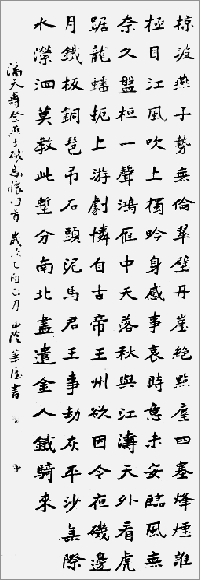 掠波燕子勢無倫翠壁丹崖絕點塵四塞烽煙誰
極目江風吹上獨吟身感事哀時意未安臨風無
奈久盤桓一聲鴻雁中天落秋與江濤天外看虎
踞龍蟠扼上游劇憐自古帝王州欲回今在磯邊
月鐵板銅琶弔石頭泥馬君王事劫灰平沙無際
水縈洄莫教此塹分南北盡遣金人鐵騎來
滿天壽登燕子磯 歲次乙酉 月山陰 書